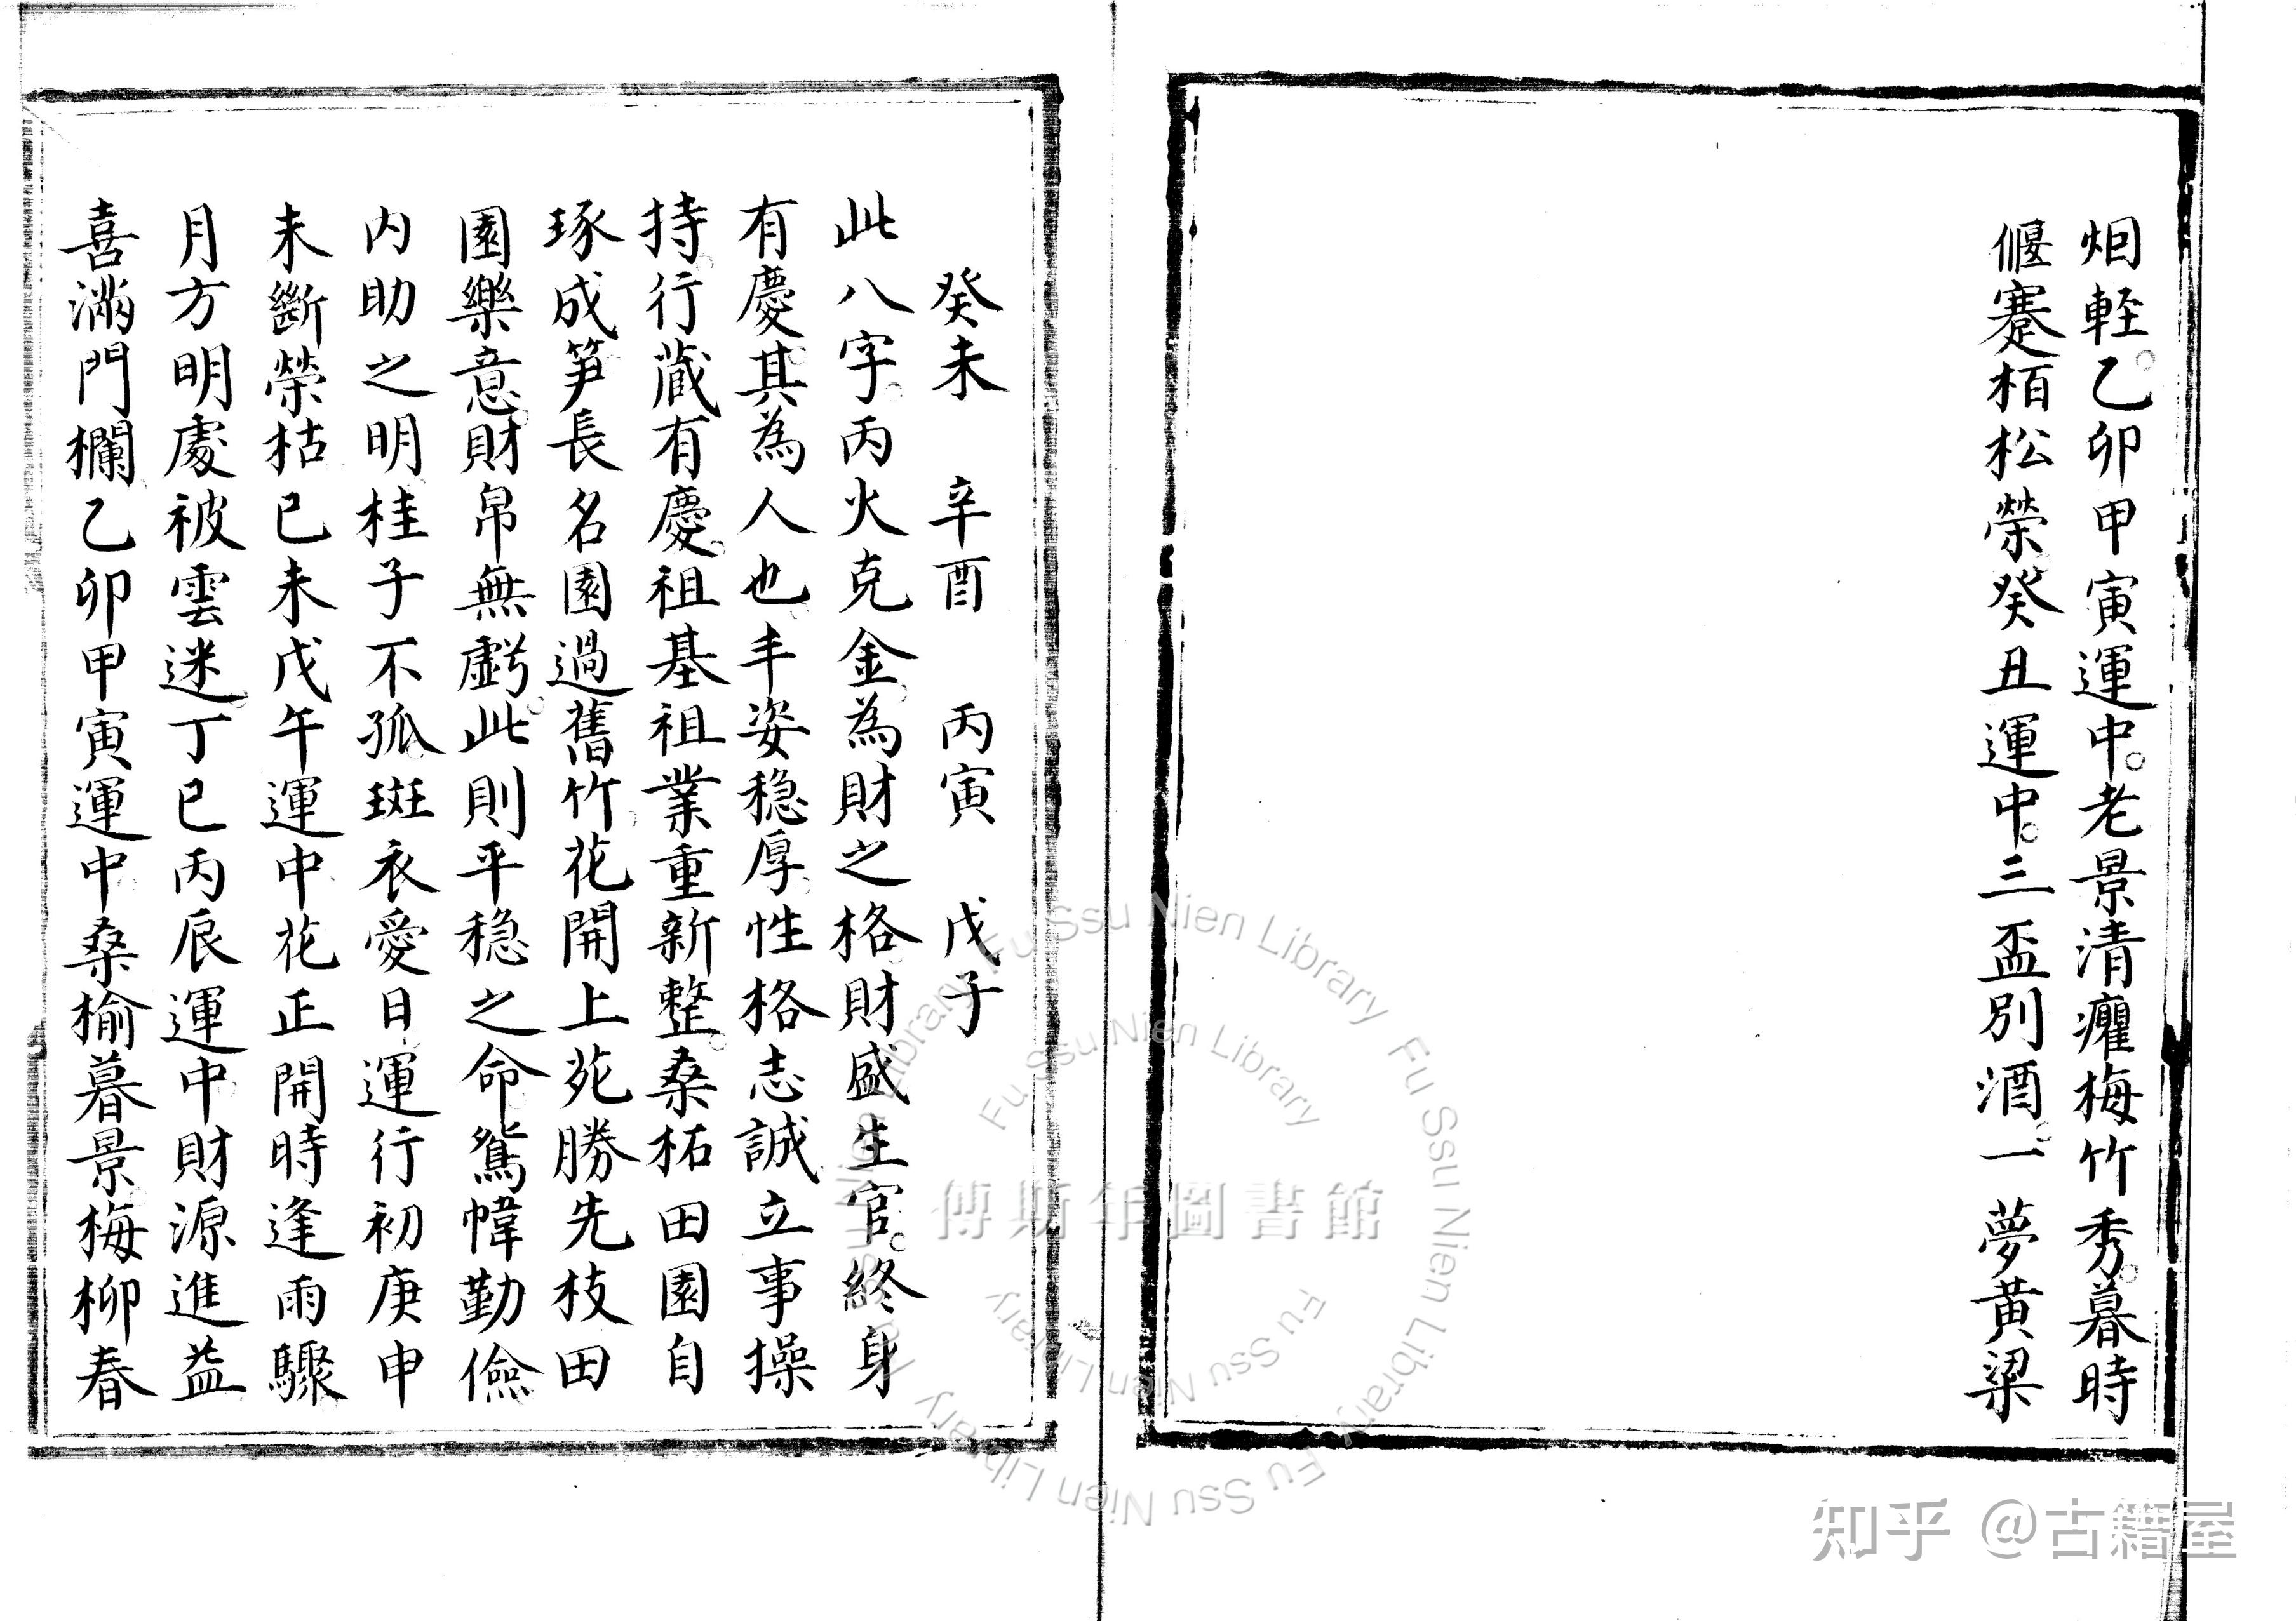 炟軽乙卯甲寅運中老景清癯梅竹秀暮時
偃蹇栢松榮癸丑運中三盃別酒一夢黃粱
癸未 辛酉 丙寅 戊子
此八字丙火克金為財之格財盛生官終身
有慶其為人也丰姿稳厚性格志誠立事操
持行藏有慶祖基祖業重新整桑柘田園自
琢成笋長名園過舊竹花開上苑勝先枝田
園樂意財帛無虧此則平稳之命鴛幃勤儉
内助之明桂子不孤斑衣愛日運行初庚申
未斷榮枯已未戊午運中花正開時逢雨驟
月方明處被雲迷丁巳丙辰運中財源進益
喜滿門欄乙卯甲寅運中桑榆暮景梅柳春
傅斯年圖書館
Fu Ssu Nien Library Fu Ssu Nien Library Fu Ssu Nien Library Fu Ssu Nien Library
Fu Ssu Nien Library Fu Ssu Nien Library
知乎 @古籍屋